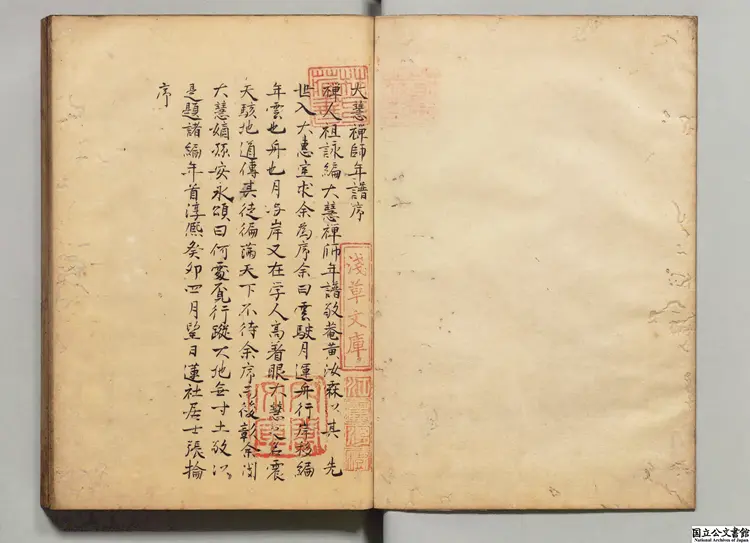 大慧禪師年譜序
禪人祖詠編大慧禪師年譜敬菴黃汝霖以其先
世入大慧室求余為序余曰雲駛月運舟行岸移編
年雲也舟也月与岸又在学人高着眼大慧之名震
天駭地道傳其徒徧滿天下不待余序而後彰余閱
大慧嫡孫安永頌曰何處覓行蹤大地無寸土敬以
是題諸編年首淳熙癸卯四月望日蓮社居士張掄
序
淺草文庫
国立公文書館
National Archives of Japan